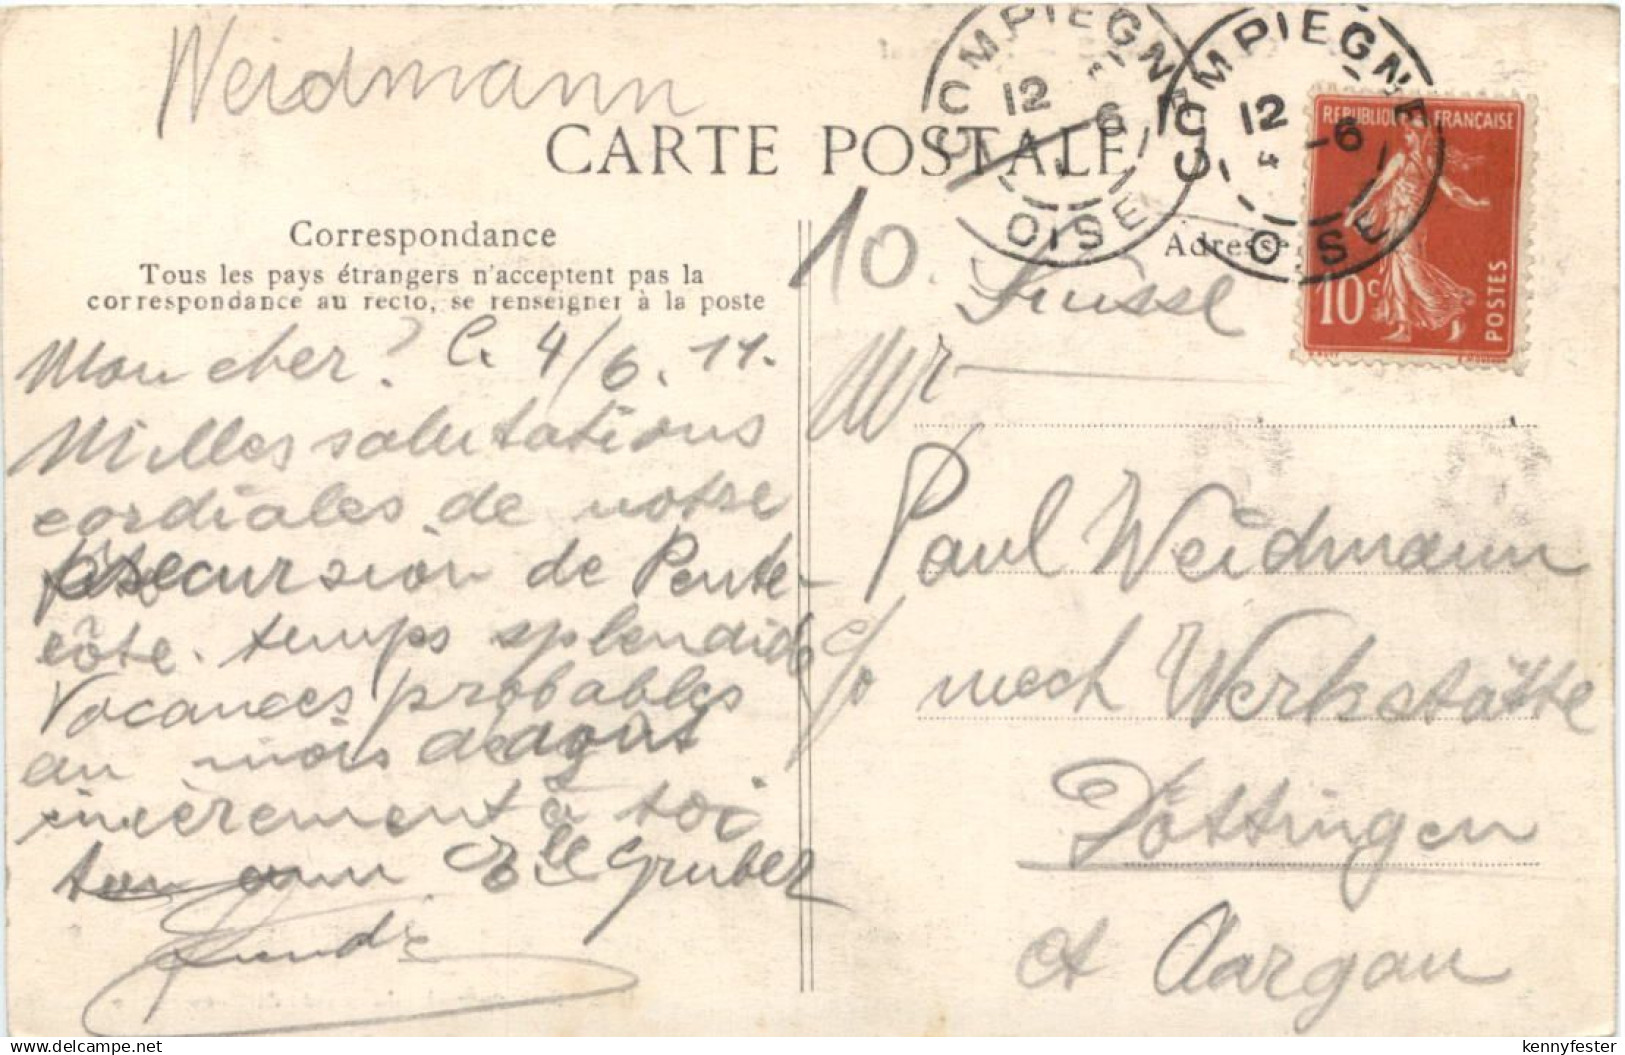 Weidmann
CARTE POSTALE
COMPIEGNE
12
6
OISE
COMPIEGNE
12 -6
4
OISE
REPUBLIQUE FRANÇAISE
10c
POSTES
Correspondance
Tous les pays étrangers n'acceptent pas la
correspondance au recto, se renseigner à la poste
Adresse
10.
Suisse
Mon cher? C. 4/6. 11.
Milles salutations
cordiales de notre
excursion de Pente-
côte. temps splendide
Vacances probables
au mois d'août
sincèrement à toi
ton ami Gruber
Mr
Paul Weidmann
c/o mech Werkstätte
Döttingen
ct Aargau
kennyfester